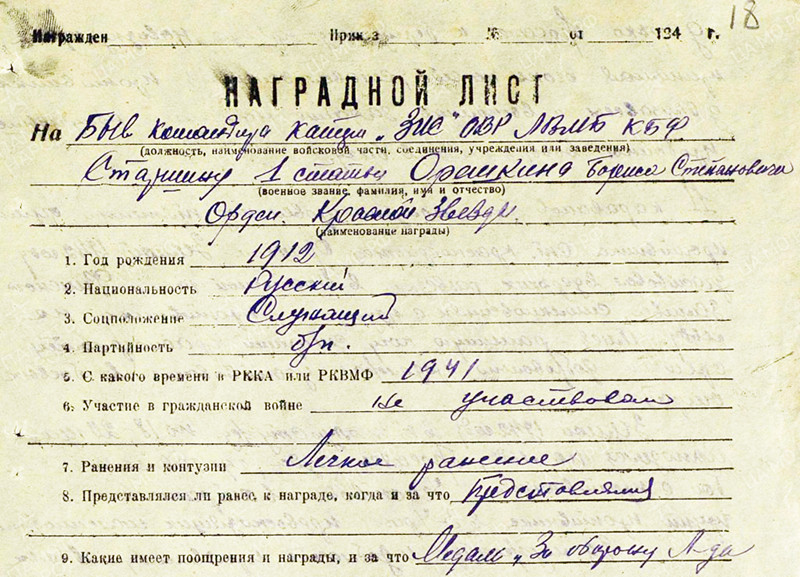 18
Награжден Приказ № от 194 г.
НАГРАДНОЙ ЛИСТ
На Быв командира катера „ЗИС" ОВР ЛВМБ КБФ
(должность, наименование войсковой части, соединения, учреждения или заведения)
Старшину 1 статьи Орашкина Бориса Степановича
(военное звание, фамилия, имя и отчество)
Орден. Красной Звезды
(наименование награды)
1. Год рождения 1912
2. Национальность Русский
3. Соцположение Служащий
4. Партийность б/п.
5. С какого времени в РККА или РКВМФ 1941
6. Участие в гражданской войне не участвовал
7. Ранения и контузии Легкое ранение
8. Представлялся ли ранее к награде, когда и за что Представлялся
9. Какие имеет поощрения и награды, и за что Медаль „За оборону Л-да